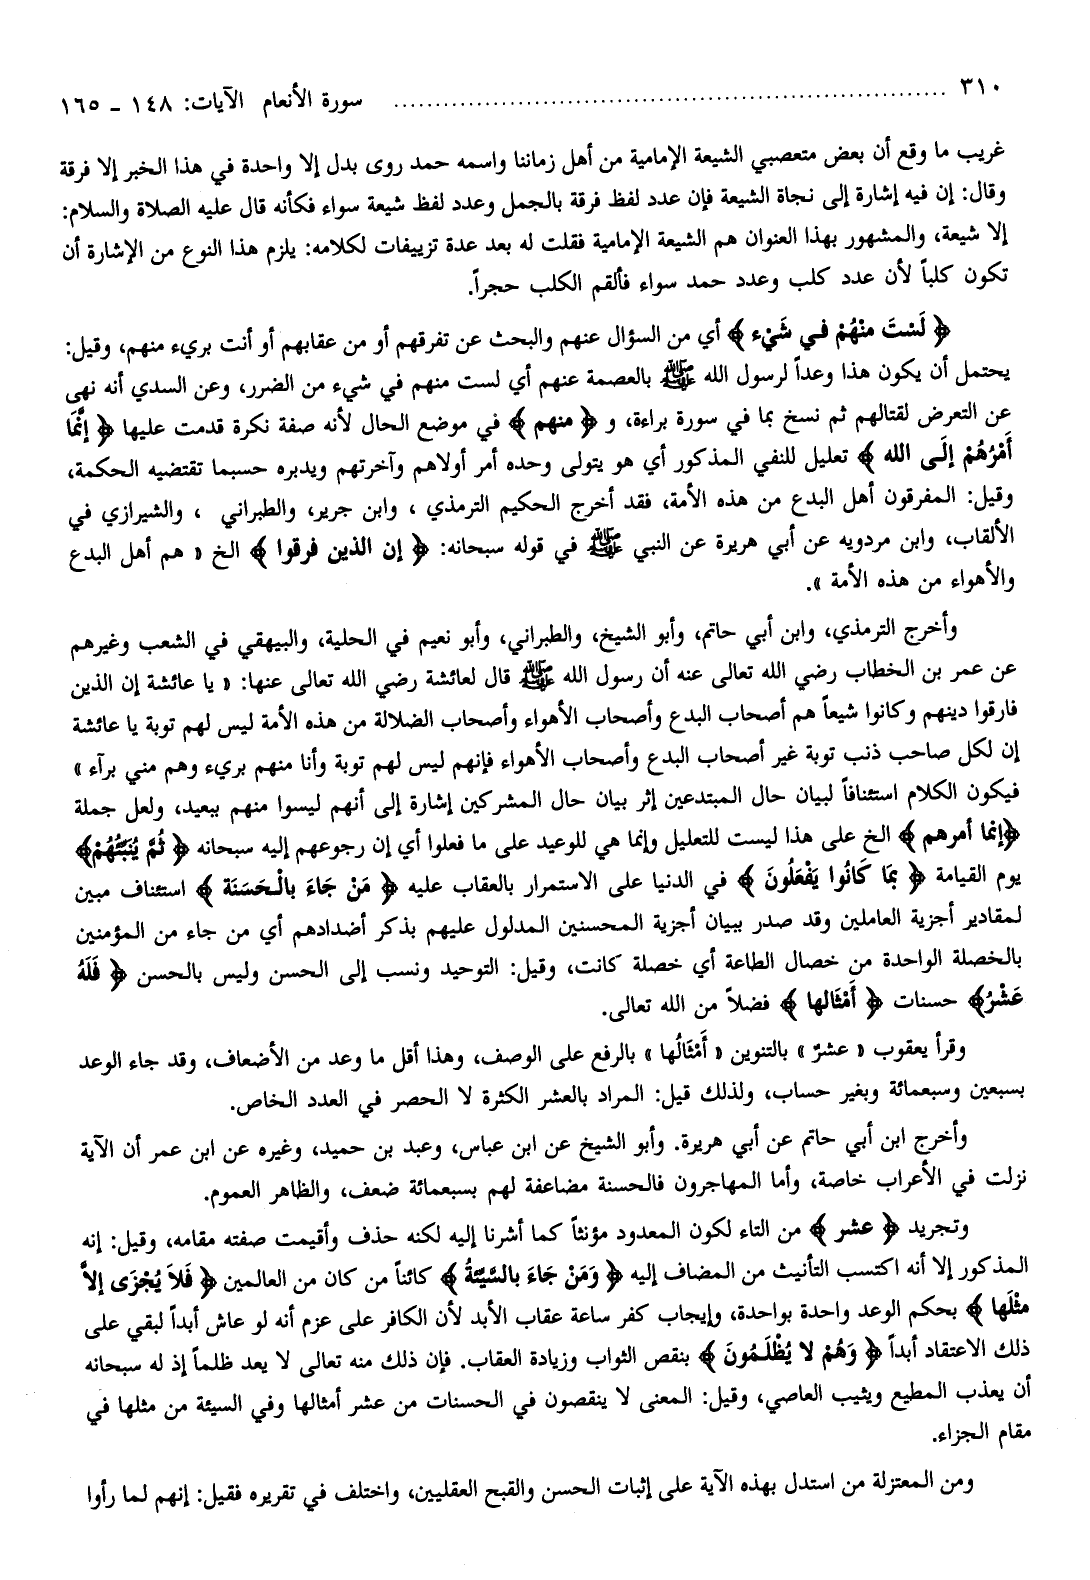 ٣١٠ ........................................ سورة الأنعام الآيات: ١٤٨ ــ ١٦٥
غريب ما وقع أن بعض متعصبي الشيعة الإمامية من أهل زماننا واسمه حمد روى بدل إلا واحدة في هذا الخبر إلا فرقة
وقال: إن فيه إشارة إلى نجاة الشيعة فإن عدد لفظ فرقة بالجمل وعدد لفظ شيعة سواء فكأنه قال عليه الصلاة والسلام:
إلا شيعة، والمشهور بهذا العنوان هم الشيعة الإمامية فقلت له بعد عدة تزييفات لكلامه: يلزم هذا النوع من الإشارة أن
تكون كلباً لأن عدد كلب وعدد حمد سواء فألقم الكلب حجراً.
﴿ لَسْتَ مِنْهُمْ فـي شَيْء ﴾ أي من السؤال عنهم والبحث عن تفرقهم أو من عقابهم أو أنت بريء منهم، وقيل:
يحتمل أن يكون هذا وعداً لرسول الله ﷺ بالعصمة عنهم أي لست منهم في شيء من الضرر، وعن السدي أنه نهي
عن التعرض لقتالهم ثم نسخ بما في سورة براءة، و ﴿ منهم ﴾ في موضع الحال لأنه صفة نكرة قدمت عليها ﴿ إنَّمَا
أَمْرُهُمْ إلَـى الله ﴾ تعليل للنفي المذكور أي هو يتولى وحده أمر أولاهم وآخرتهم ويدبره حسبما تقتضيه الحكمة،
وقيل: المفرقون أهل البدع من هذه الأمة، فقد أخرج الحكيم الترمذي ، وابن جرير، والطبراني ، والشيرازي في
الألقاب، وابن مردويه عن أبي هريرة عن النبي ﷺ في قوله سبحانه: ﴿ إن الذين فرقوا ﴾ الخ « هم أهل البدع
والأهواء من هذه الأمة ».
وأخرج الترمذي، وابن أبي حاتم، وأبو الشيخ، والطبراني، وأبو نعيم في الحلية، والبيهقي في الشعب وغيرهم
عن عمر بن الخطاب رضي الله تعالى عنه أن رسول الله ﷺ قال لعائشة رضي الله تعالى عنها: « يا عائشة إن الذين
فارقوا دينهم وكانوا شيعاً هم أصحاب البدع وأصحاب الأهواء وأصحاب الضلالة من هذه الأمة ليس لهم توبة يا عائشة
إن لكل صاحب ذنب توبة غير أصحاب البدع وأصحاب الأهواء فإنهم ليس لهم توبة وأنا منهم بريء وهم مني برآء »
فيكون الكلام استئنافاً لبيان حال المبتدعين إثر بيان حال المشركين إشارة إلى أنهم ليسوا منهم ببعيد، ولعل جملة
﴿إنما أمرهم ﴾ الخ على هذا ليست للتعليل وإنما هي للوعيد على ما فعلوا أي إن رجوعهم إليه سبحانه ﴿ ثُمَّ يُنَبِّئُهُمْ﴾
يوم القيامة ﴿ بِمَا كَانُوا يَفْعَلُونَ ﴾ في الدنيا على الاستمرار بالعقاب عليه ﴿ مَنْ جَاءَ بالْـحَسَنَة ﴾ استئناف مبين
لمقادير أجزية العاملين وقد صدر ببيان أجزية المحسنين المدلول عليهم بذكر أضدادهم أي من جاء من المؤمنين
بالخصلة الواحدة من خصال الطاعة أي خصلة كانت، وقيل: التوحيد ونسب إلى الحسن وليس بالحسن ﴿ فَلَهُ
عَشْرُ﴾ حسنات ﴿ أَمْثَالها ﴾ فضلاً من الله تعالى.
وقرأ يعقوب « عشرٌ » بالتنوين « أَمْثَالُها » بالرفع على الوصف، وهذا أقل ما وعد من الأضعاف، وقد جاء الوعد
بسبعين وسبعمائة وبغير حساب، ولذلك قيل: المراد بالعشر الكثرة لا الحصر في العدد الخاص.
وأخرج ابن أبي حاتم عن أبي هريرة. وأبو الشيخ عن ابن عباس، وعبد بن حميد، وغيره عن ابن عمر أن الآية
نزلت في الأعراب خاصة، وأما المهاجرون فالحسنة مضاعفة لهم بسبعمائة ضعف، والظاهر العموم.
وتجريد ﴿ عشر ﴾ من التاء لكون المعدود مؤنثاً كما أشرنا إليه لكنه حذف وأقيمت صفته مقامه، وقيل: إنه
المذكور إلا أنه اكتسب التأنيث من المضاف إليه ﴿ وَمَنْ جَاءَ بالسَّيِّئَةُ ﴾ كائناً من كان من العالمين ﴿ فَلاَ يُجْزَى إلاَّ
مثْلَها ﴾ بحكم الوعد واحدة بواحدة، وإيجاب كفر ساعة عقاب الأبد لأن الكافر على عزم أنه لو عاش أبداً لبقي على
ذلك الاعتقاد أبداً ﴿ وَهُمْ لا يُظْلَـمُونَ ﴾ بنقص الثواب وزيادة العقاب. فإن ذلك منه تعالى لا يعد ظلماً إذ له سبحانه
أن يعذب المطيع ويثيب العاصي، وقيل: المعنى لا ينقصون في الحسنات من عشر أمثالها وفي السيئة من مثلها في
مقام الجزاء.
ومن المعتزلة من استدل بهذه الآية على إثبات الحسن والقبح العقليين، واختلف في تقريره فقيل: إنهم لما رأوا